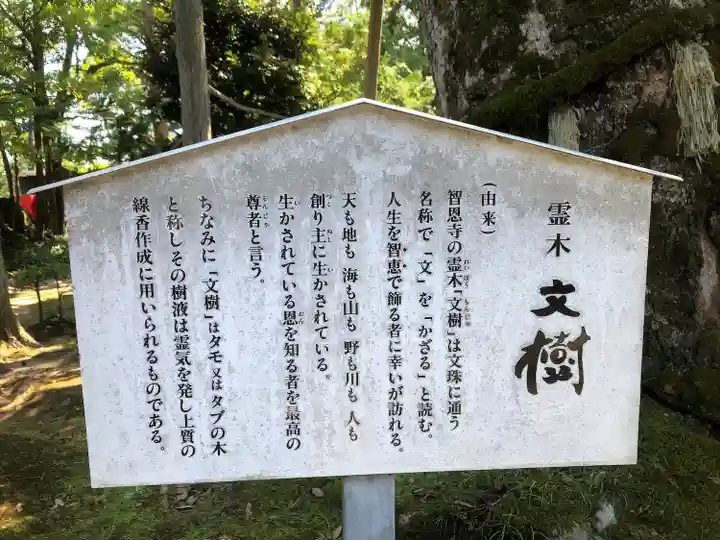 霊木 文樹
(由来)
智恩寺の霊木「文樹」は文珠に通う
名称で「文」を「かざる」と読む。
人生を智恵で飾る者に幸いが訪れる。
天も地も 海も山も 野も川も 人も
創り主に生かされている。
生かされている恩を知る者を最高の
尊者と言う。
ちなみに「文樹」はタモ又はタブの木
と称しその樹液は霊気を発し上質の
線香作成に用いられるものである。